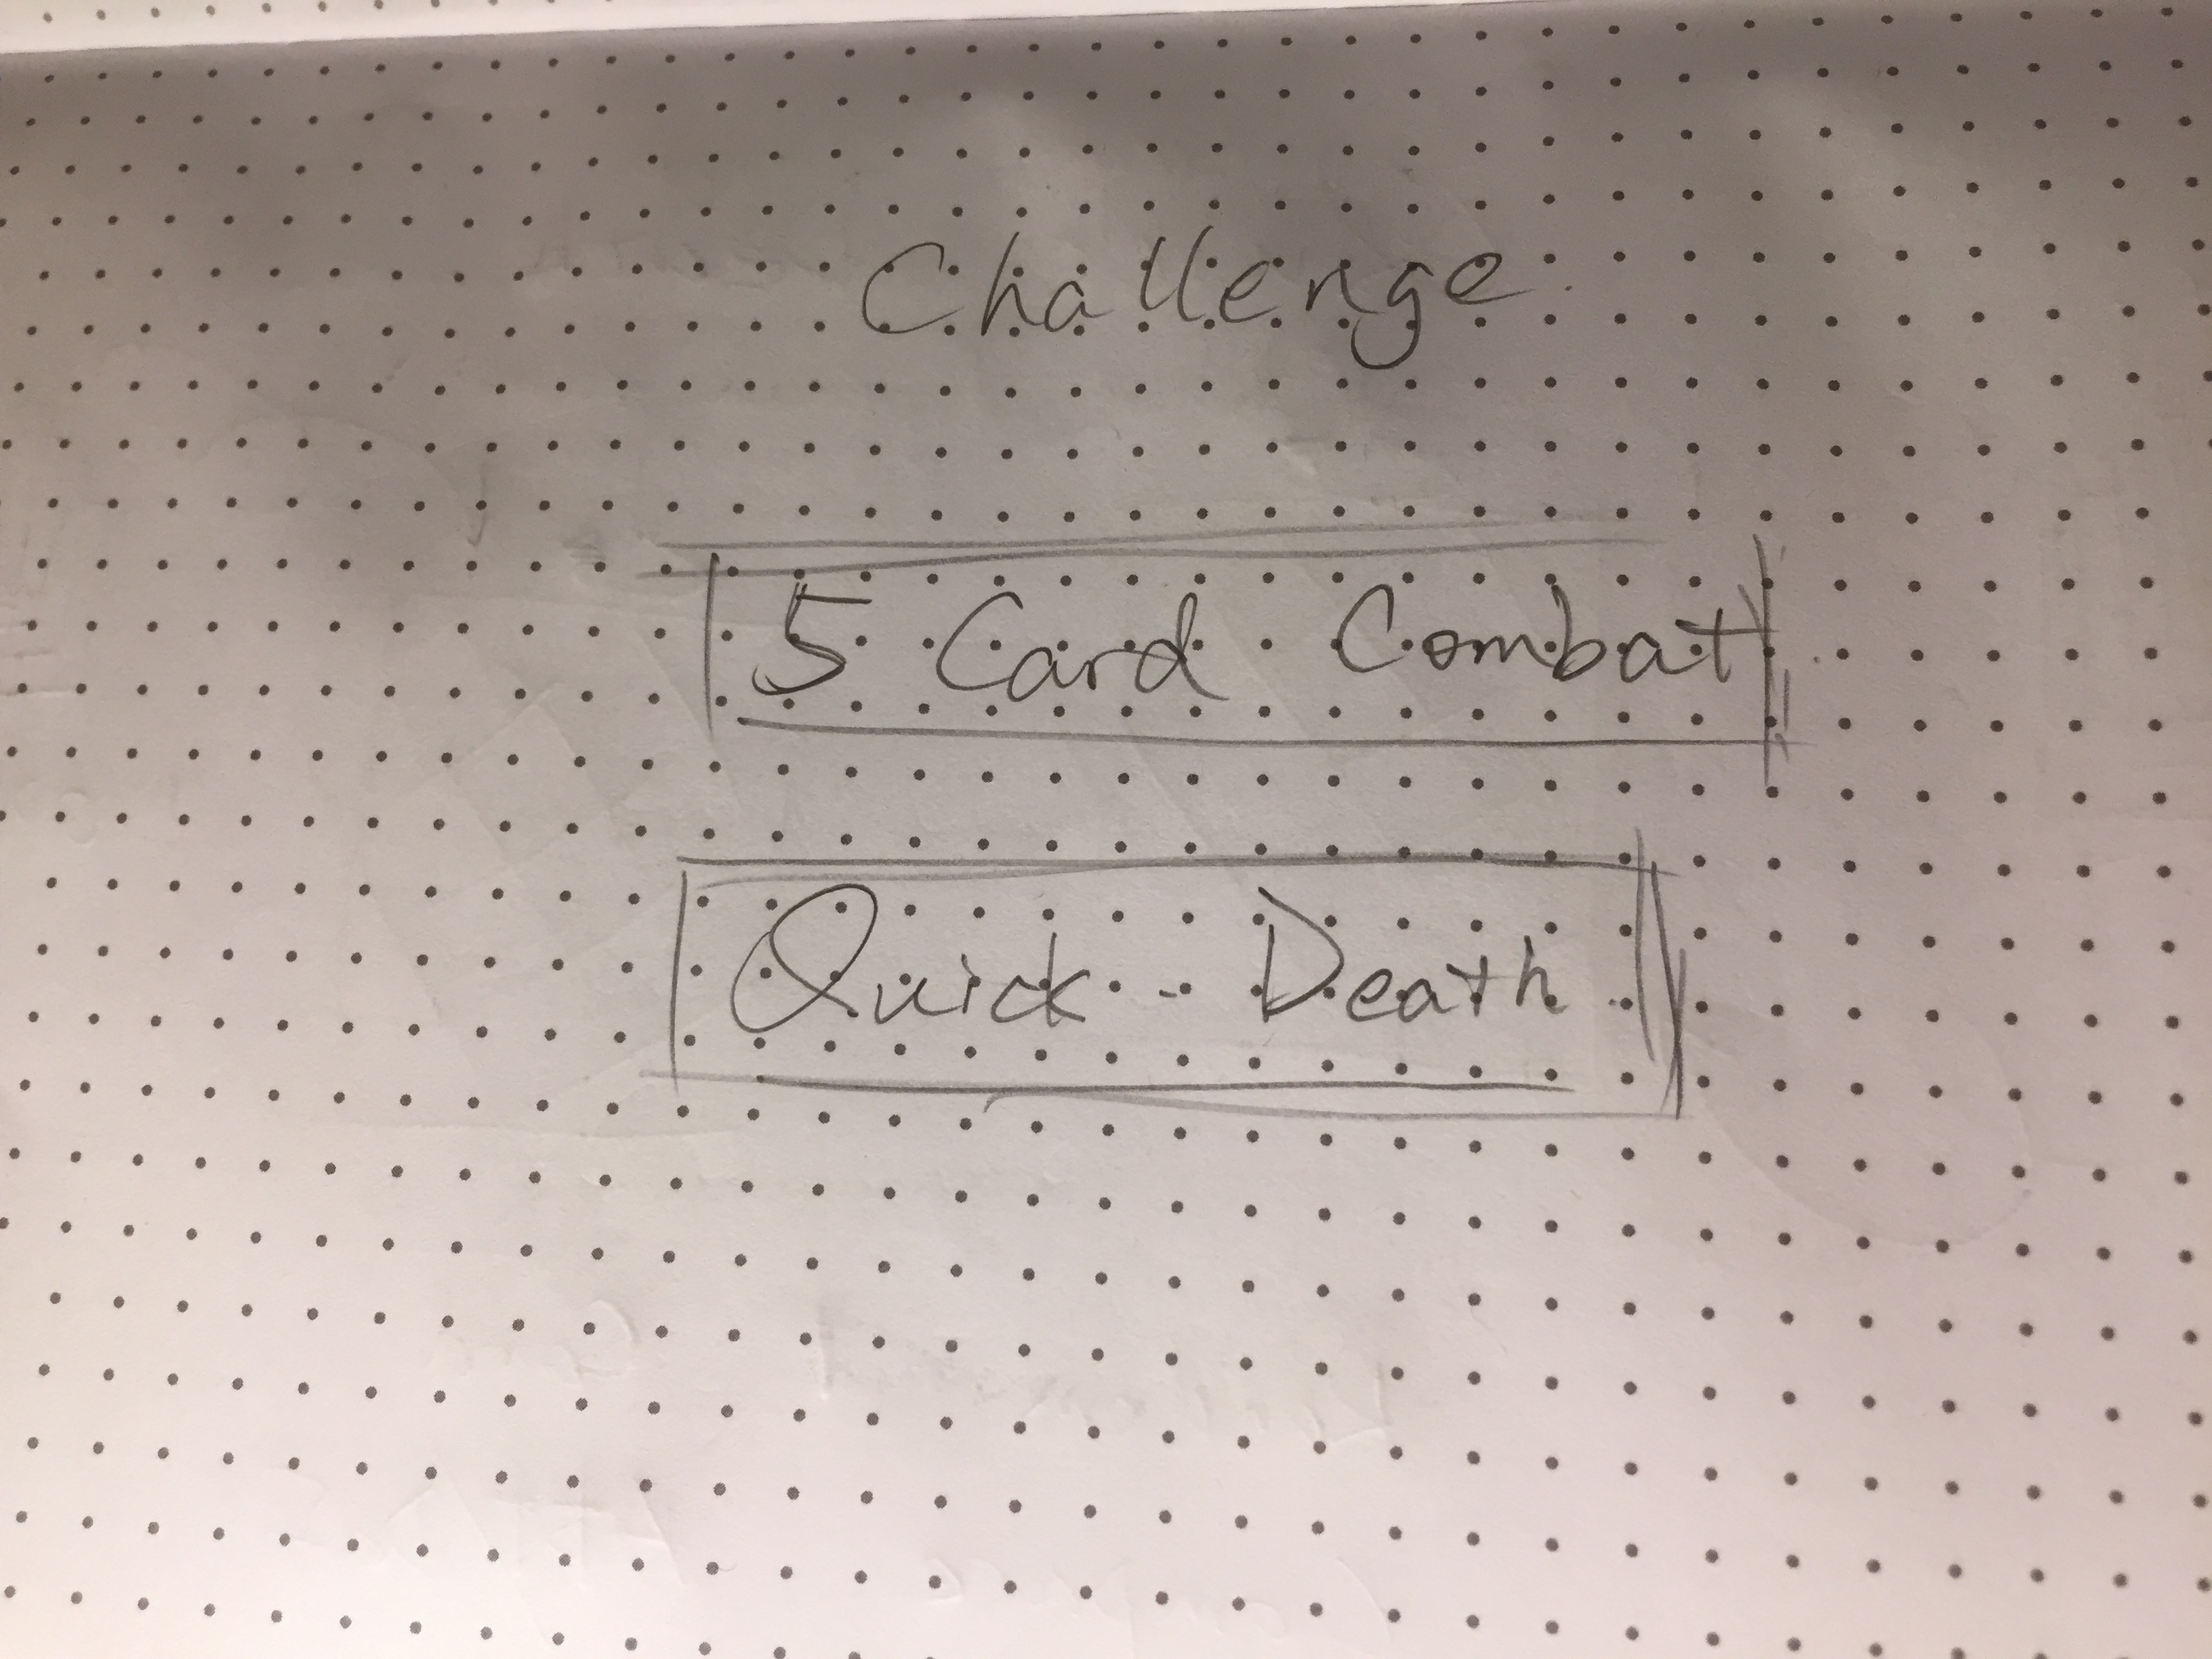 Challenge
5 Card Combat
Quick - Death